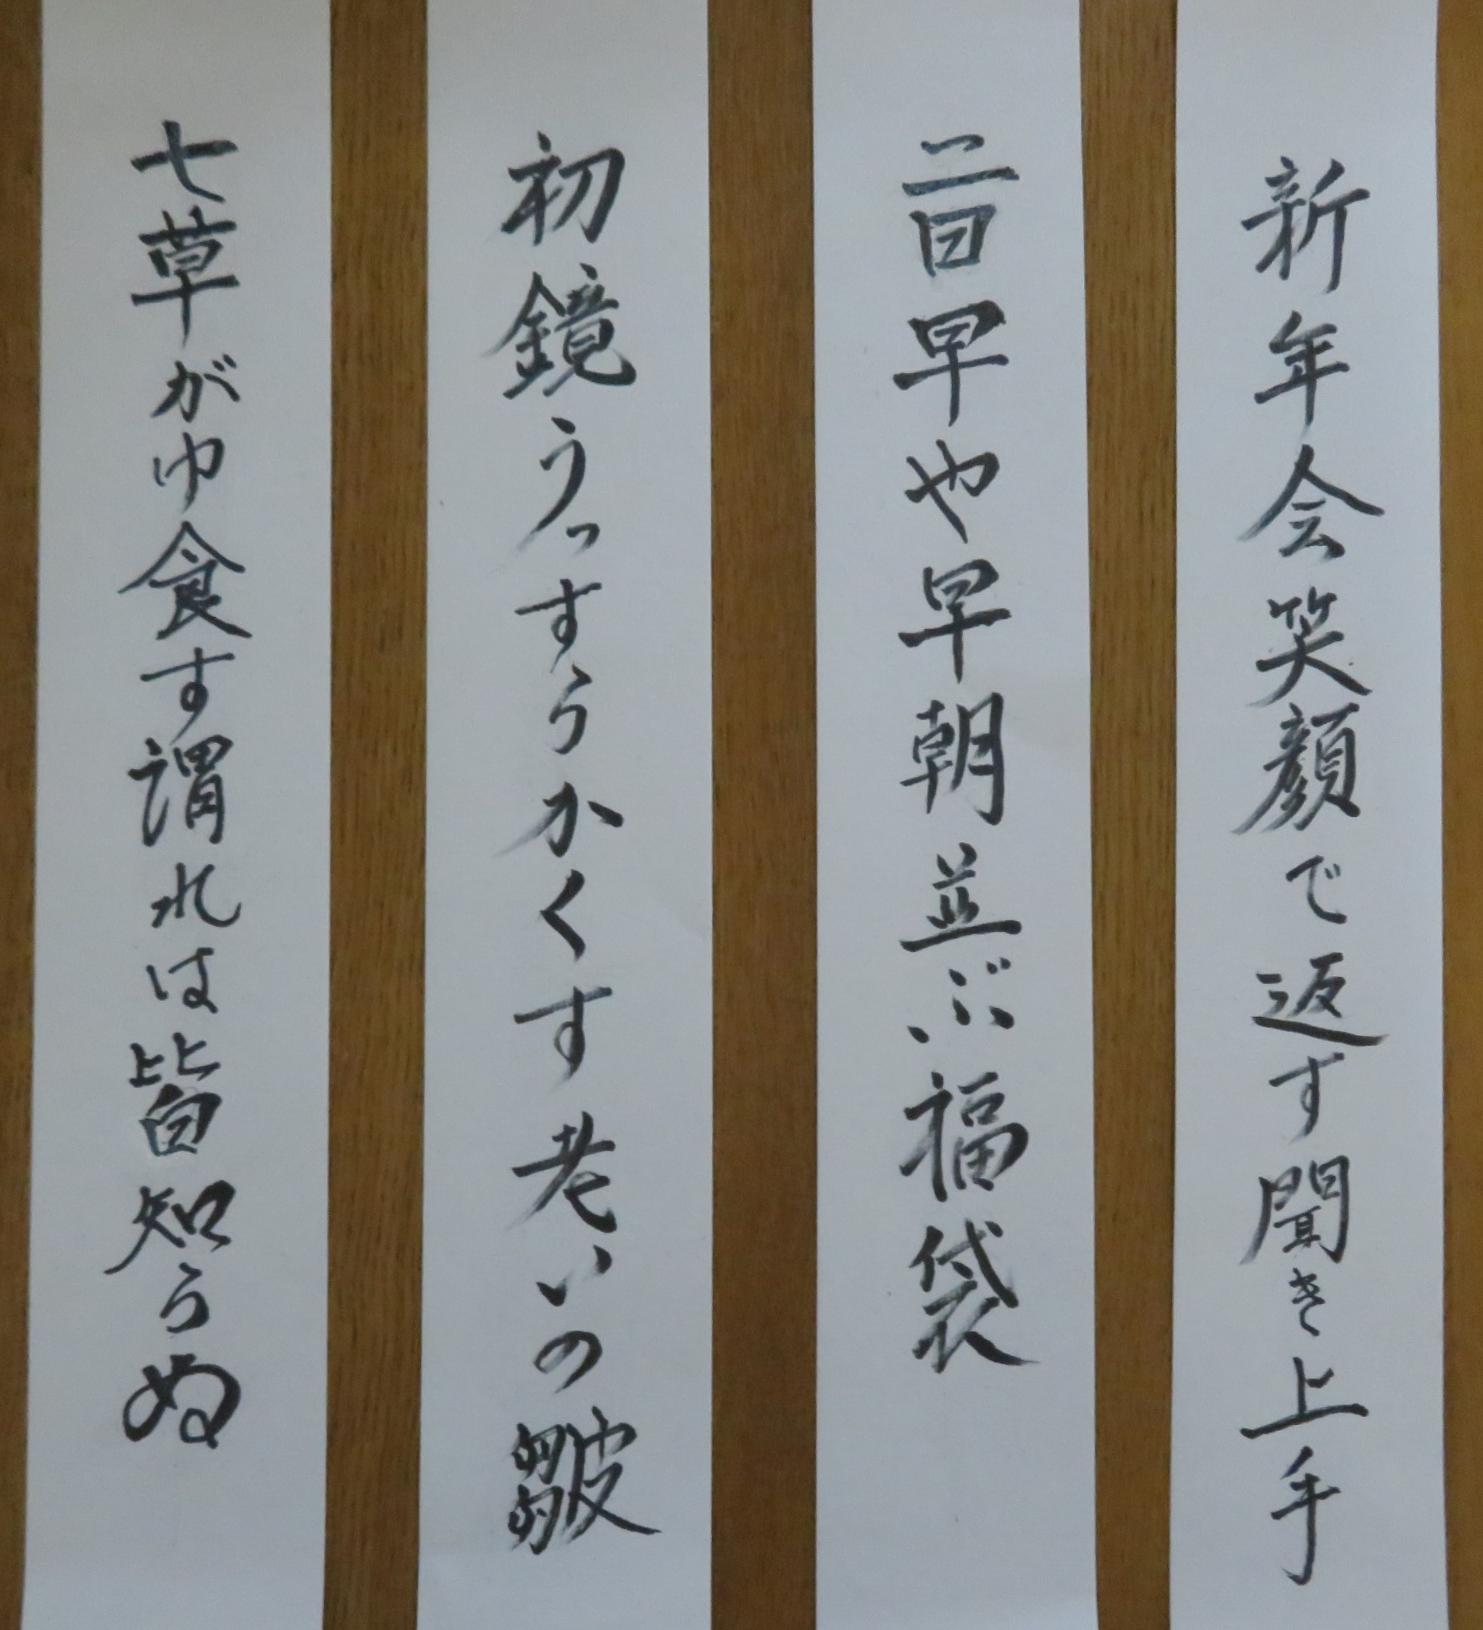 新年会笑顔で返す聞き上手
二日早や早朝並ぶ福袋
初鏡うっすらかくす老いの皺
七草がゆ食す謂れは皆知らぬ